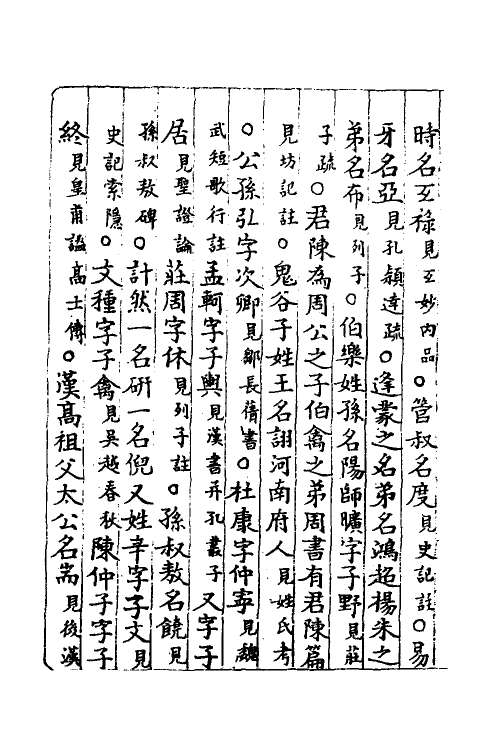 時名亙祿見亙妙內品○管叔名度見史記註○易
牙名亞見孔穎達疏○逢蒙之名弟名鴻超楊朱之
弟名布見列子○伯樂姓孫名陽師曠字子野見莊
子疏○君陳為周公之子伯禽之弟周書有君陳篇
見坊記註○鬼谷子姓王名詡河南府人見姓氏考
○公孫弘字次卿見鄒長蒨書○杜康字仲寧見魏
武短歌行註孟軻字子輿見漢書幷孔叢子又字子
居見聖證論莊周字休見列子註○孫叔敖名饒見
孫叔敖碑○計然一名硏一名倪又姓辛字子文見
史記索隱○文種字子禽見吳越春秋陳仲子字子
終見皇甫謐高士傳○漢高祖父太公名耑見後漢